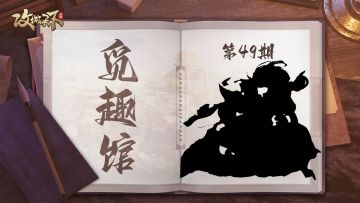 攻城掠地
觅趣馆
第49期